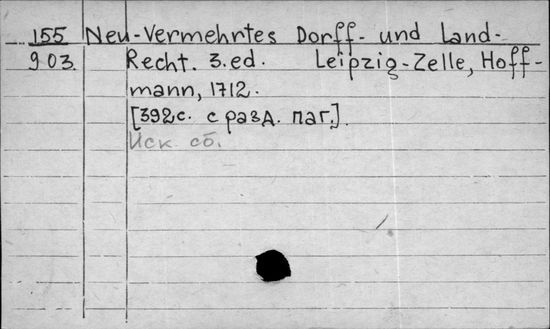 155 Neu-Vermehrtes Dorff- und Land-
903. Recht. 3. ed. Leipzig-Zelle, Hoff-
mann, 1712.
[392с. с разд. паг.].
Иск. сб.